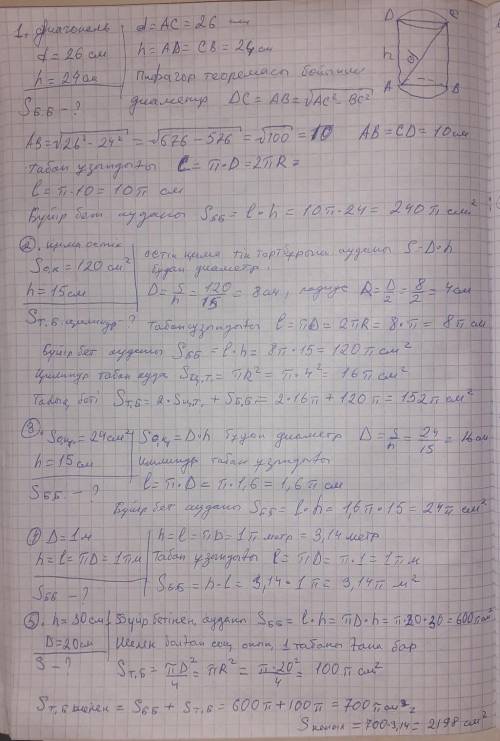 1. Диагональ d = AC = 26 см
d = 26 см h = AD = CB = 24 см
h = 24 см Пифагор теоремасы бойынша
Sб.б - ? диаметр DC = AB = √AC² - BC²
D C h d A B
AB = √26² - 24² = √676 - 576 = √100 = 10 AB = CD = 10 см
табан ұзындығы C = π·D = 2πR =
l = π·10 = 10π см
Бүйір бет ауданы Sбб = l·h = 10π·24 = 240π см²
2. қима остік остік қима тік төртбұрыш ауданы S = D·h
Sок = 120 см² Бұдан диаметр:
h = 15 см D = S/h = 120/15 = 8 см, радиус R = D/2 = 8/2 = 4 см
Sт.б. цилиндр ? Табан ұзындығы l = πD = 2πR = 8·π = 8π см
Бүйір бет ауданы Sбб = l·h = 8π·15 = 120π см²
Цилиндр табан ауда Sц.т. = πR² = π·4² = 16π см²
Толық беті Sт.б = 2·Sц.т. + Sб.б = 2·16π + 120π = 152π см²
3 Sоқ = 24 см² Sоқ = D·h Бұдан диаметр D = S/h = 24/15 = 1,6 см
h = 15 см Цилиндр табан ұзындығы
Sбб - ? l = π·D = π·1,6 = 1,6π см
Бүйір бет ауданы Sбб = l·h = 1,6π·15 = 24π см²
D = 1 м h = l = πD = 1π метр = 3,14 метр
h = l = πD = 1π м Табан ұзындығы l = πD = π·1 = 1π м
Sбб - ? Sбб = h·l = 3,14·1π = 3,14π м²
5. h = 30 см Бүйір бетінің ауданы Sбб = l·h = πD·h = π·20·30 = 600π см²
D = 20 см болған соң оның 1 табаны ғана бар
S - ? Sт.б = πD²/4 = πR² = π·20²/4 = 100π см²
Sт.б = Sбб + Sт.б = 600π + 100π = 700π см²
S = 700·3,14 = 2198 см²